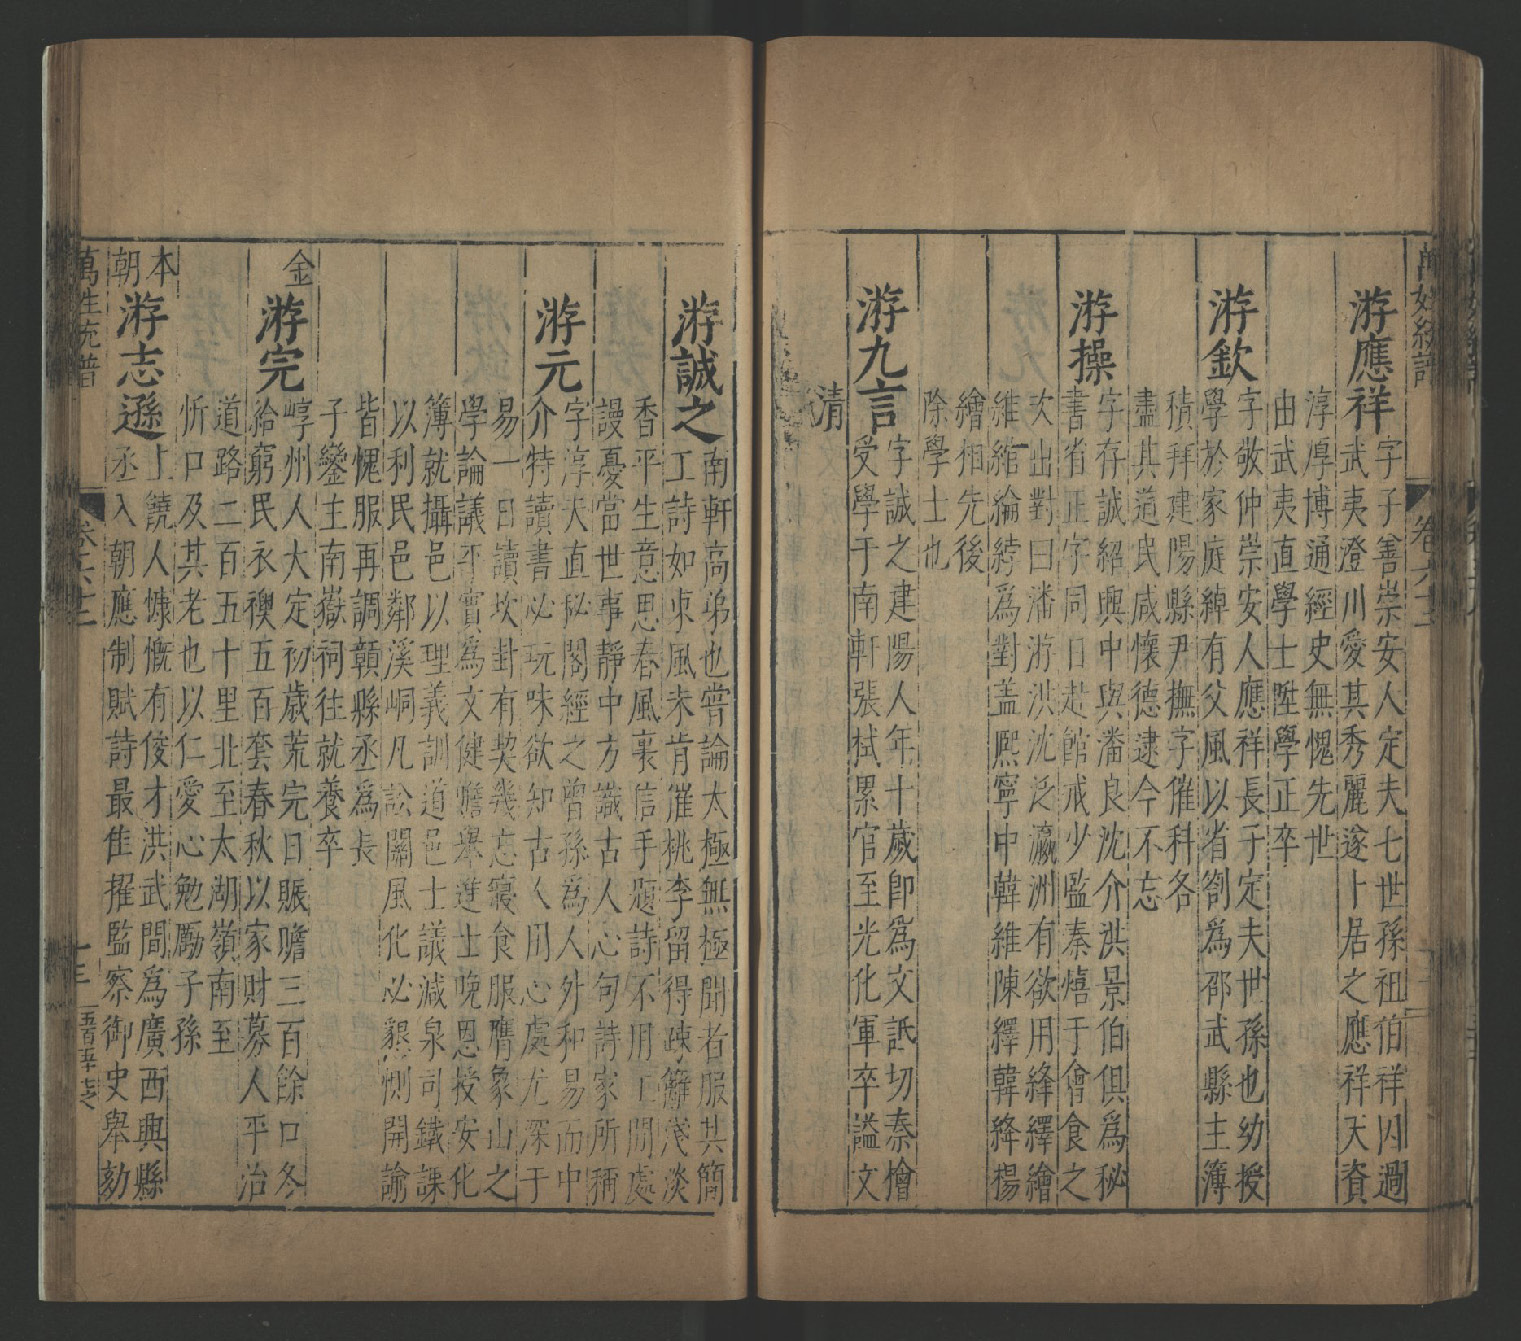 萬姓統譜
卷六十二
游應祥
字子善崇安人定夫七世孫祖伯祥因過
武夷澄川愛其秀麗遂卜居之應祥天資
淳厚博通經史無愧先世
由武夷直學士陞學正卒
游欽
字敬仲崇安人應祥長子定夫世孫也幼授
學於家庭綽有父風以省劄為邵武縣主簿
積拜建陽縣尹撫字催科各
盡其道民咸懷德逮今不忘
游操
字存誠紹興中與潘良沈介洪景伯俱為秘
書省正字同日赴館戒少監秦熺于僧食之
次出對曰潘游洪沈泛瀛洲有欲用絳繹繪
維綰綸綍為對盖熙寧中韓維陳繹韓絳楊
繪相先後
除學士也
游九言
字誠之建陽人年十歲卽為文詆切秦檜
受學于南軒張栻累官至光化軍卒謚文
清
游誠之
南軒高弟也嘗論太極無極聞者服其簡
工詩如東風未肯催桃李留得疎籬淺淡
香平生意思春風裏信手題詩不用工閒處
謾憂當世事靜中方識古人心句詩家所稱
游元
字淳夫直秘閣經之曾孫為人外和易而中
介特讀書必玩味欲知古人用心處尤深于
易一日讀坎卦有契幾忘寢食服膺象山之
學論議平實為文健贍舉進士晚恩授安化
簿就攝邑以理義訓道邑士議減泉司鐵課
以利民邑鄰溪峒凡訟關風化必懇惻開諭
皆愧服再調贛縣丞為長
子鑾主南嶽祠往就養卒
金
游完
崞州人大定初歲荒完日賑贍三百餘口冬
給窮民衣襖五百套春秋以家財募人平治
道路二百五十里北至太湖嶺南至
忻口及其老也以仁愛心勉勵子孫
本朝
游志遜
上饒人慷慨有俊才洪武間為廣西興縣
丞入朝應制賦詩最隹擢監察御史舉劾
萬姓統譜
卷六十二
十三